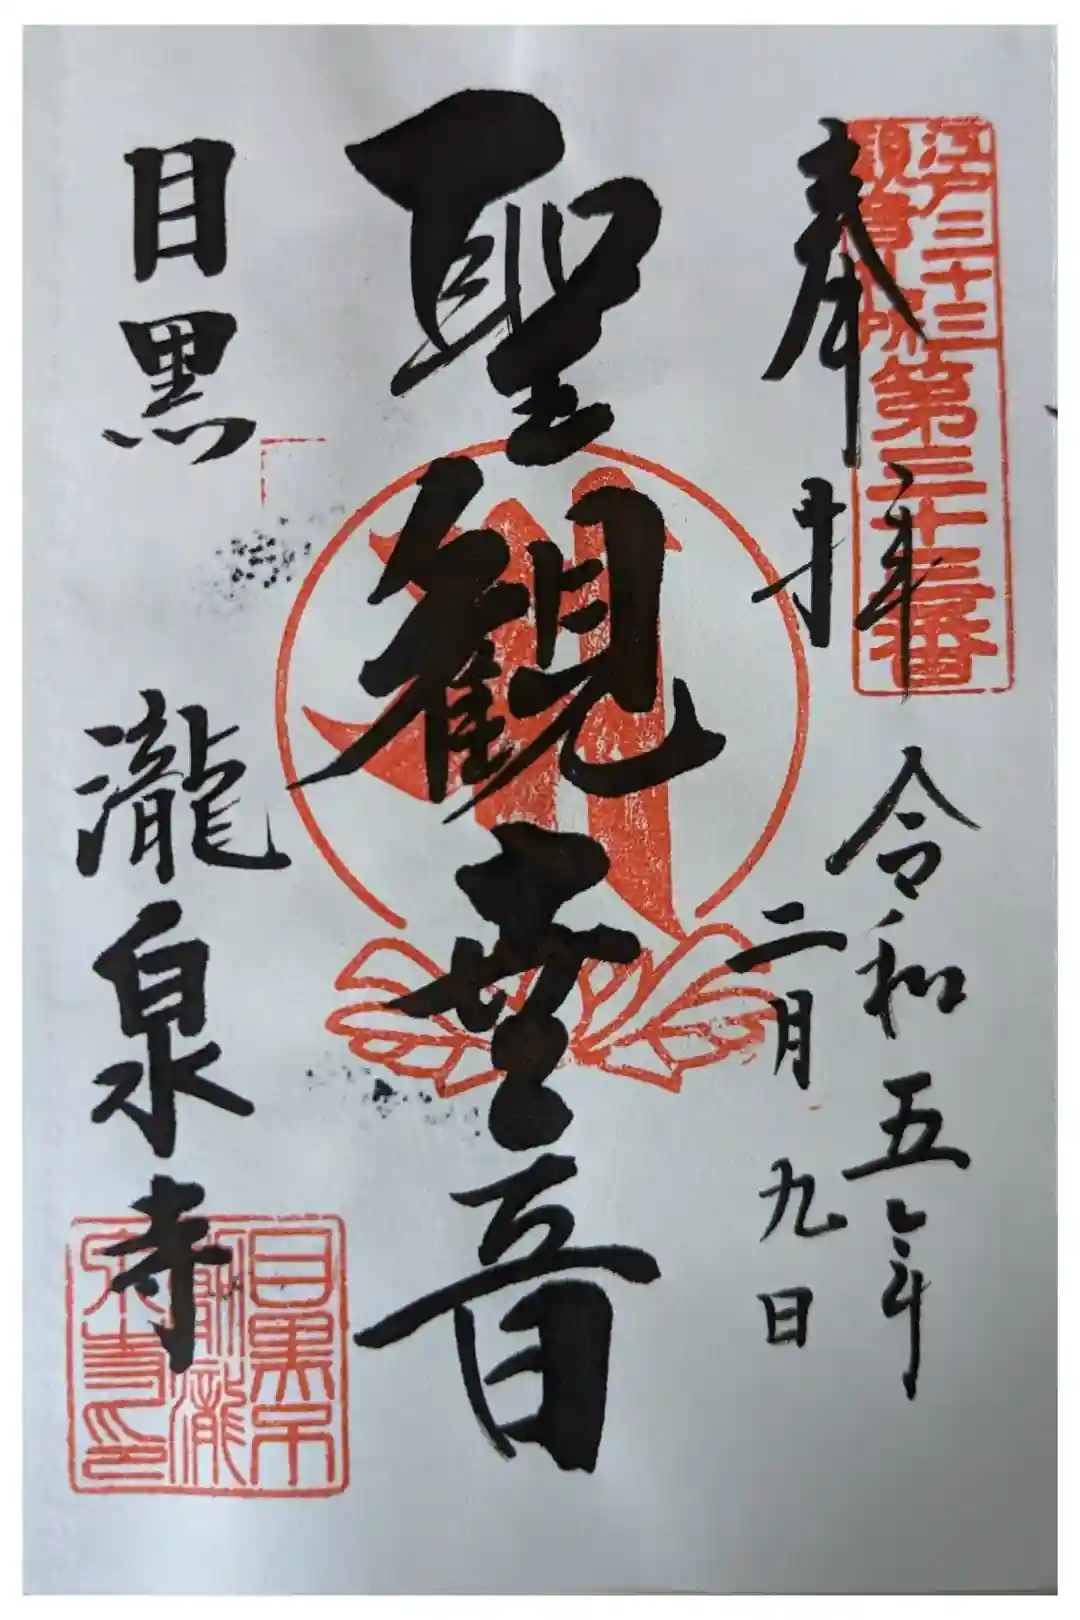 江戸三十三
観音札所
第三十三番
奉拝
令和五年
二月九日
聖観世音
目黒 瀧泉寺